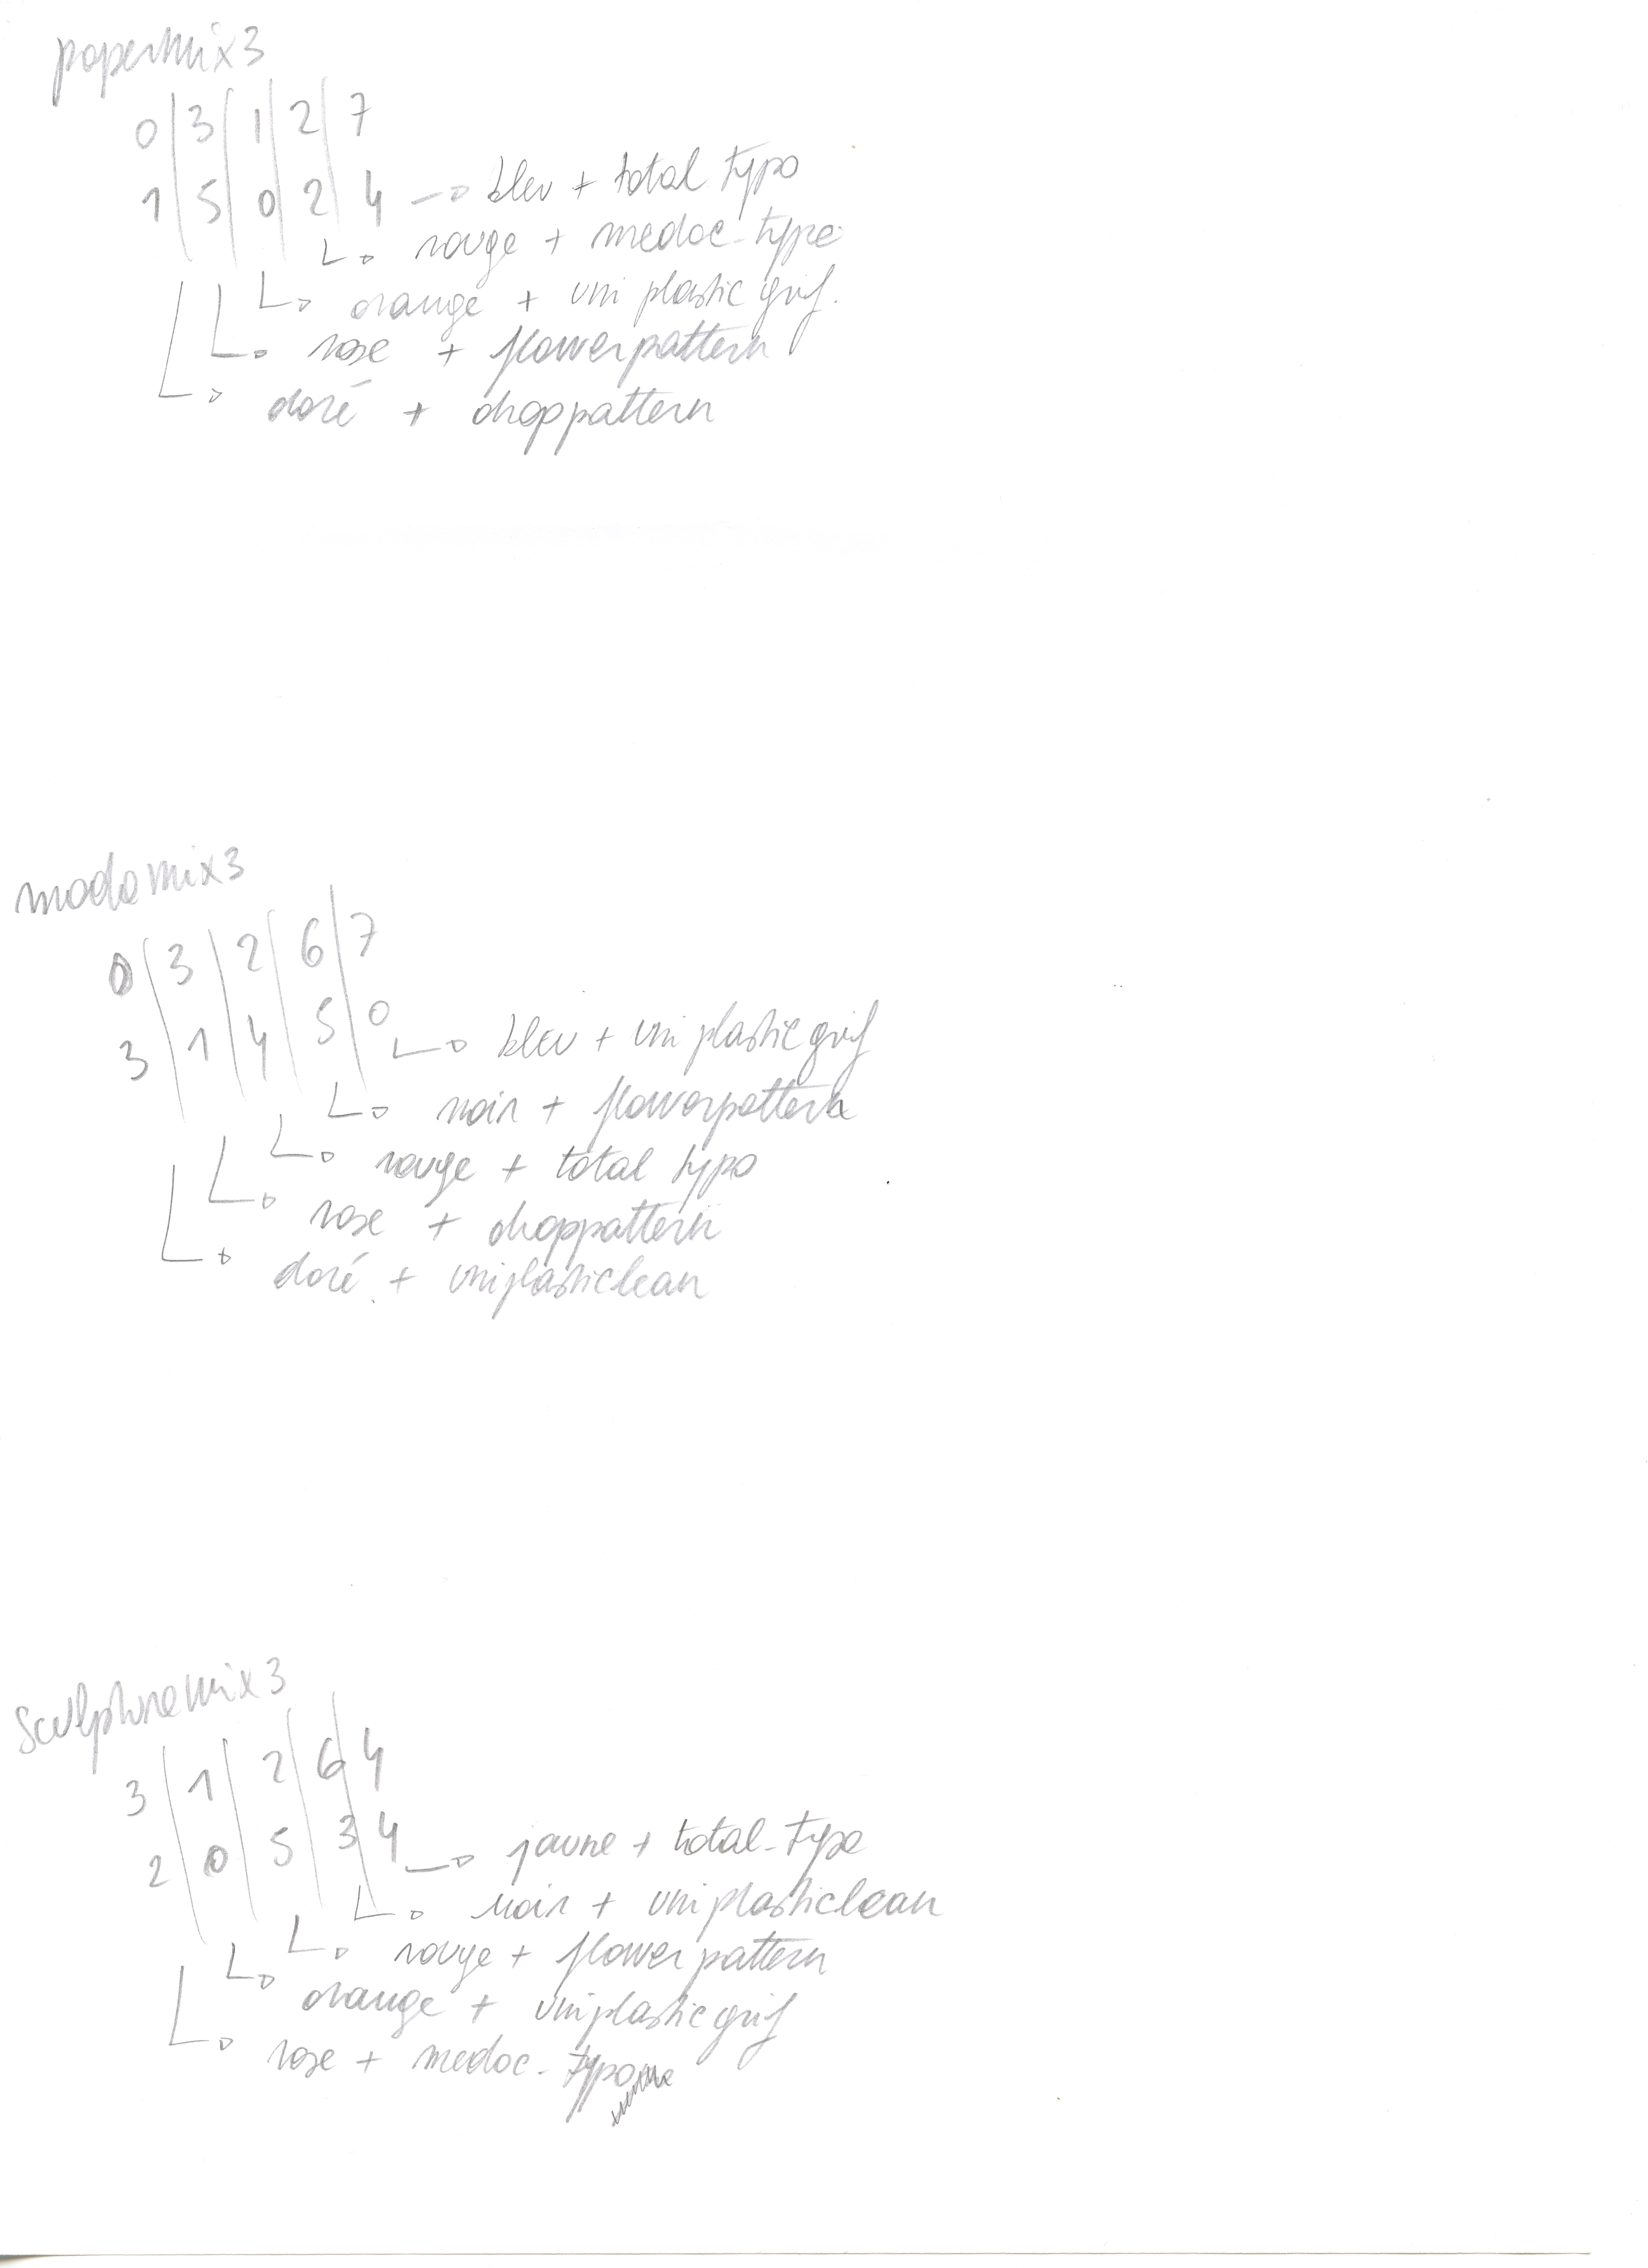 papermix3
0 3 1 2 7
1 5 0 2 4 → bleu + total typo
rouge + medoc-type
orange + uni plastic grif.
rose + flowerpattern
doré + droppattern
modamix3
0 3 2 6 7
3 1 4 5 0 bleu + uni plastic grif
noir + flowerpattern
rouge + total typo
rose + droppattern
doré + uniplasticlean
sculpturemix3
3 1 2 6 4
2 0 5 3 4 jaune + total-typo
noir + uniplasticlean
rouge + flowerpattern
orange + uniplastic grif
rose + medoc-typo